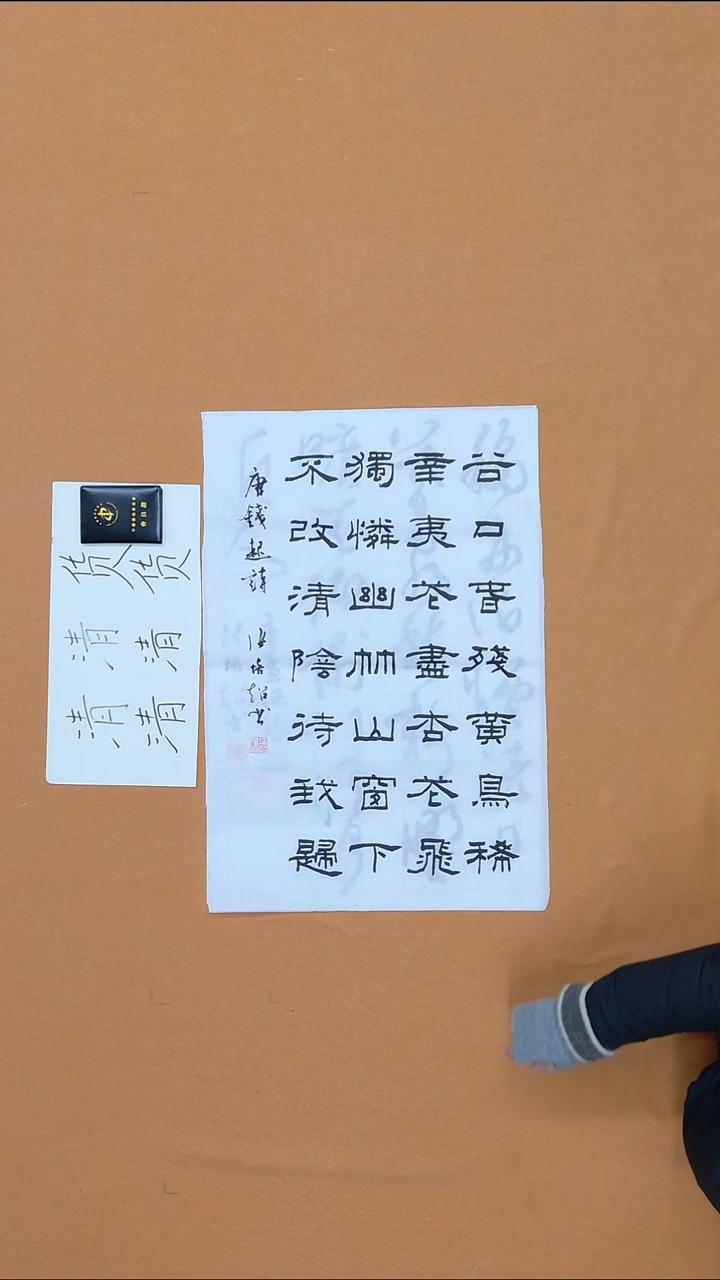 谷口春殘黃鳥稀
辛夷花盡杏花飛
獨憐幽竹山窗下
不改清陰待我歸
唐錢起詩
货清清
货清清